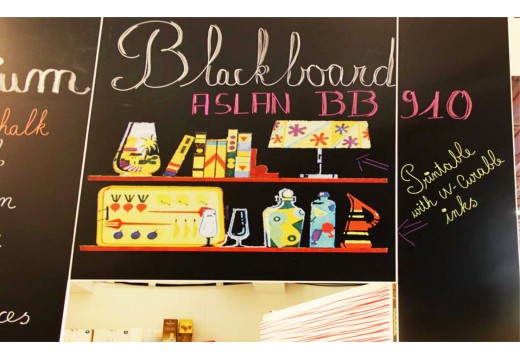 Blackboard
ASLAN BB 910
ium
halk
Printable
with uv-Curable
inks
m
ces